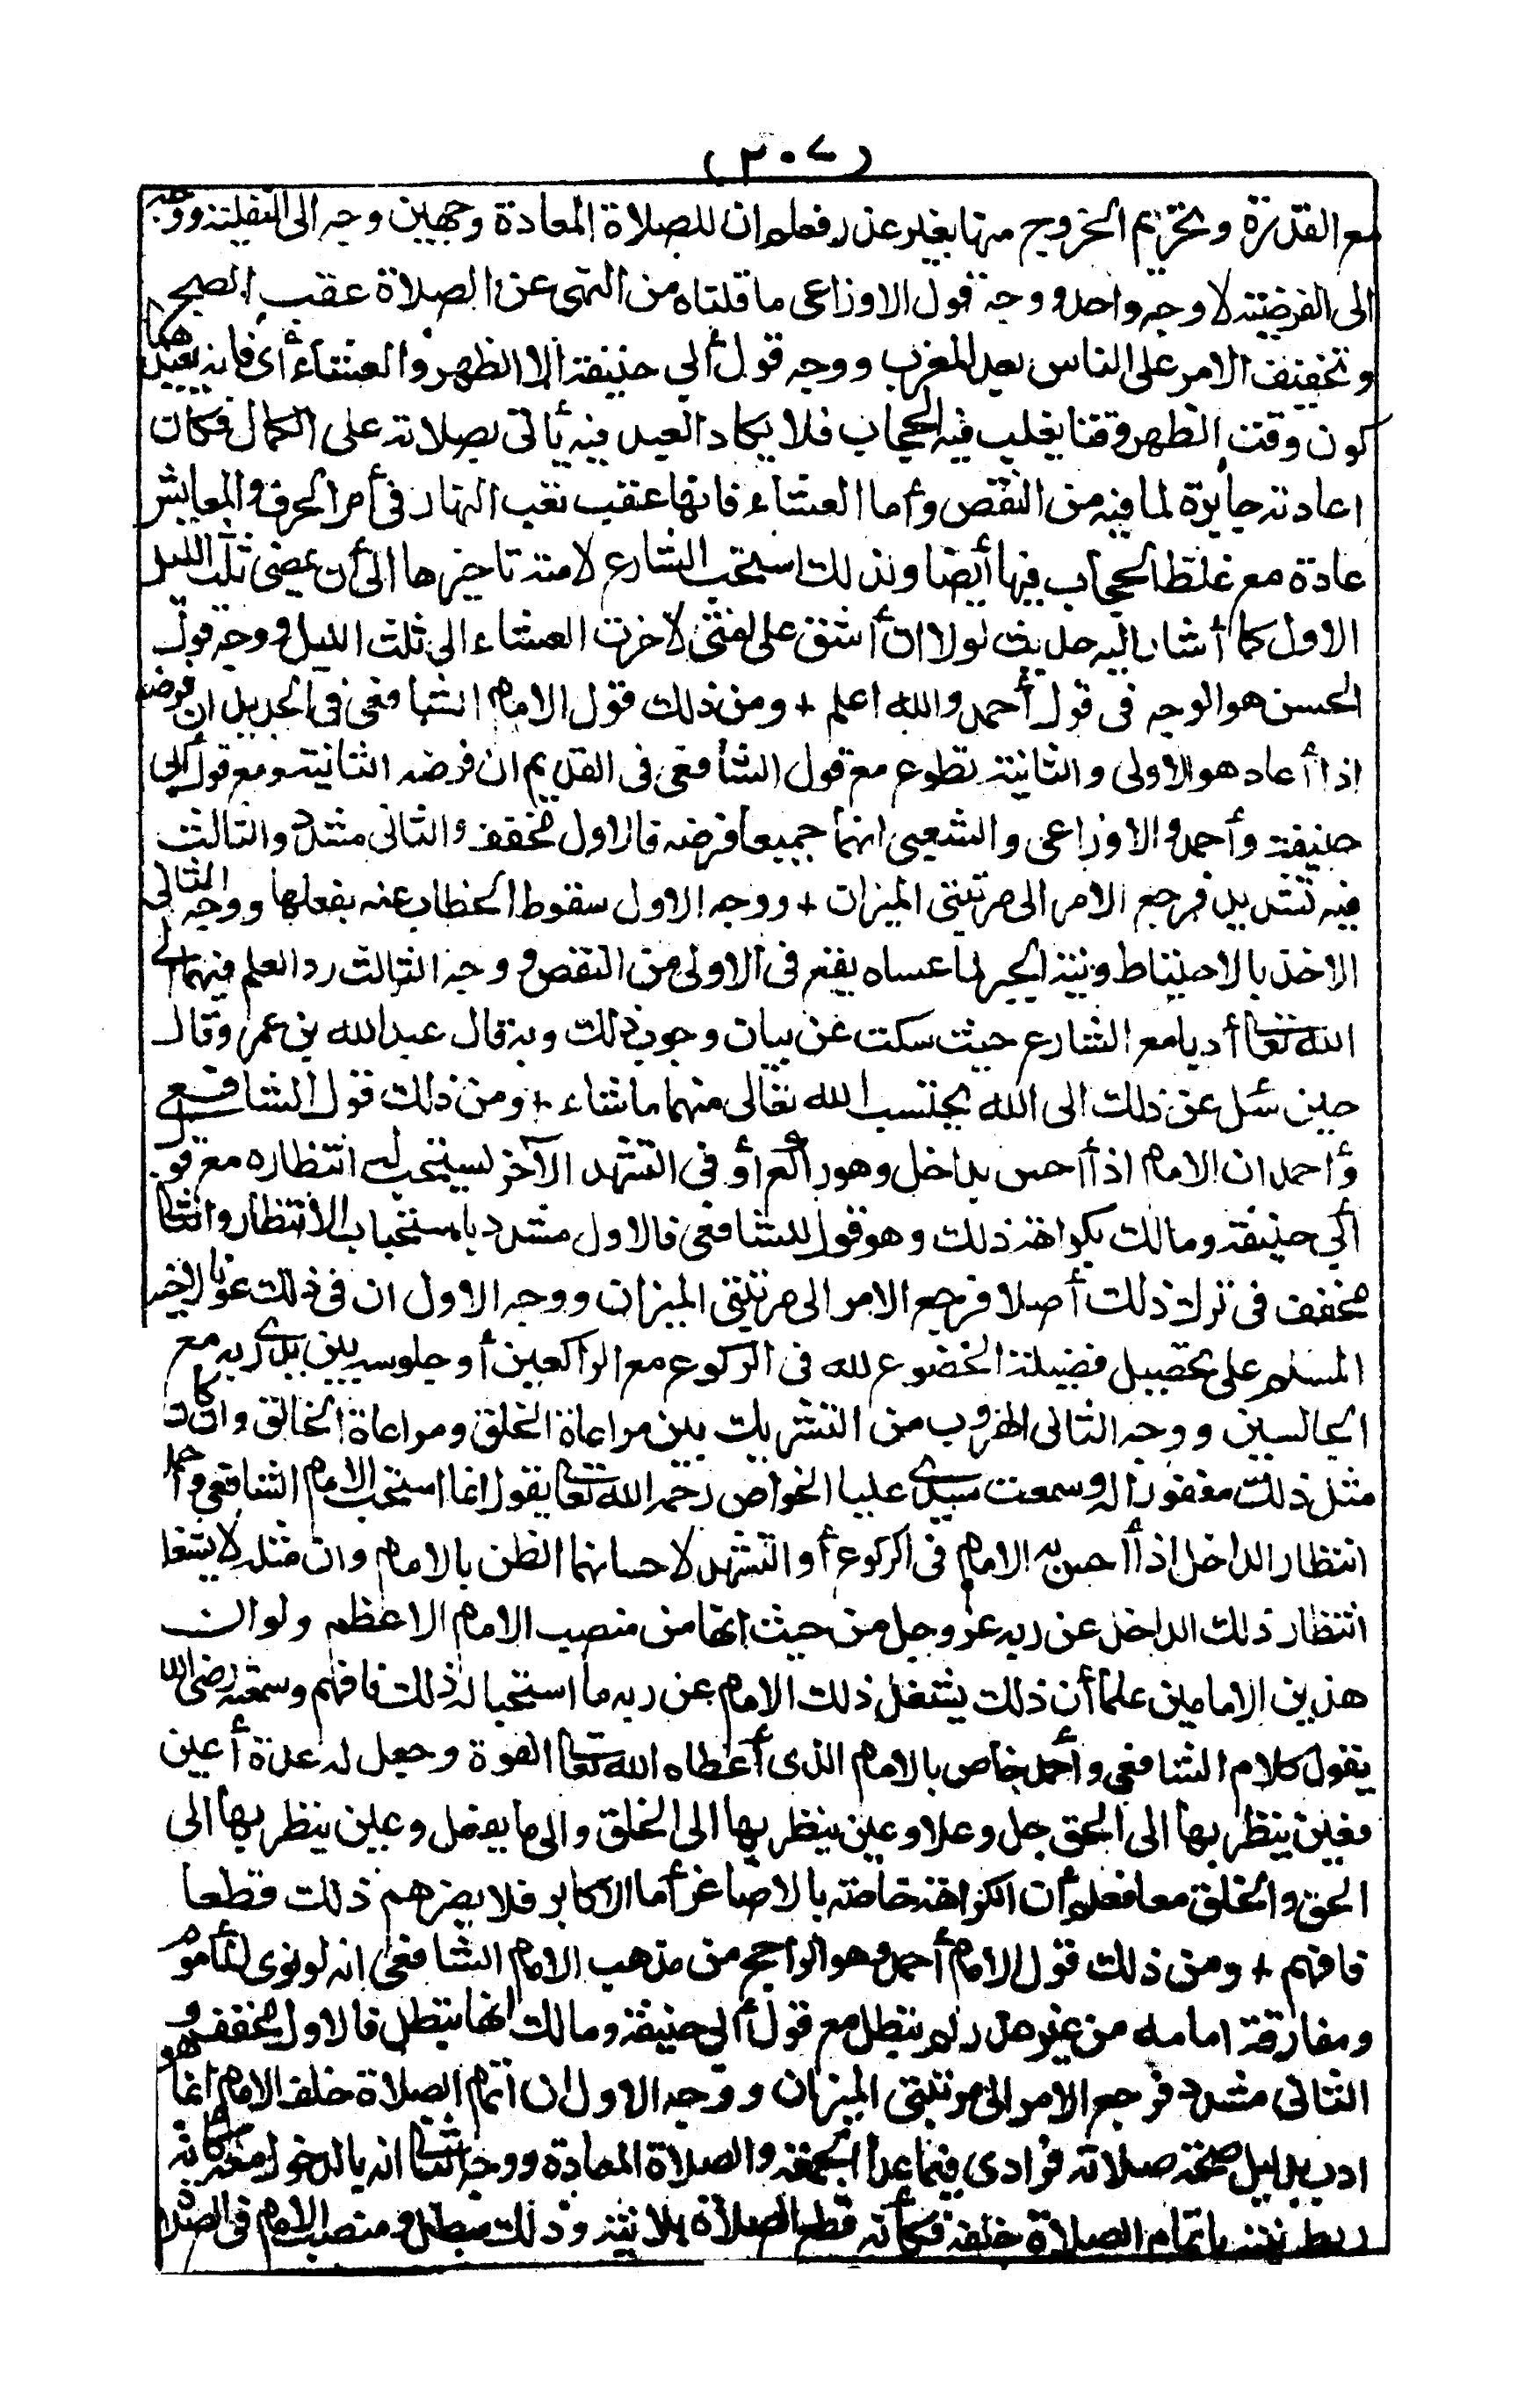 (٢٠٧)
مع القدرة وتحريم الخروج منها بغير عذر فعلم ان للصلاة المعادة وجهين وجه الى النفلية ووجه
الى الفرضية لا وجه واحد ووجه قول الاوزاعى ما قلناه من النهى عن الصلاة عقب الصبح
وتخفيف الامر على الناس بعد المغرب ووجه قول أبي حنيفة الا الظهر والعشاء أى فانه يعيدهما
كون وقت الظهر وقتا يغلب فيه الحجاب فلا يكاد العبد فيه يأتى بصلاته على الكمال فكان
اعادته جايزة لما فيه من النقص وأما العشاء فانها عقب تعب النهار في أمر الحرف والمعايش
عادة مع غلظ الحجاب فيها أيضا ولذلك استحب الشارع لامته تاخيرها الى أن يمضى ثلث الليل
الاول كما أشار اليه حديث لولا ان أشق على امتى لاخرت العشاء الى ثلث الليل ووجه قول
الحسن هو الوجه فى قول أحمد والله اعلم + ومن ذلك قول الامام الشافعى فى الجديد ان فرضه
اذا أعاد هو الاولى والثانية تطوع مع قول الشافعى فى القديم ان فرضه الثانية ومع قول أبى
حنيفة وأحمد والاوزاعى والشعبى انهما جميعا فرضه فالاول مخفف والثانى مشدد والثالث
فيه تشديد فرجع الامر الى مرتبتى الميزان + ووجه الاول سقوط الخطاب عنه بفعلها ووجه الثانى
الاخذ بالاحتياط ونية الجبر لما عساه يقع فى الاولى من النقص ووجه الثالث رد العلم فيهما الى
الله تعا أدبا مع الشارع حيث سكت عن بيان وجوب ذلك وبه قال عبد الله بن عمر وقال
حين سئل عن ذلك الى الله يحتسب الله تعالى منهما ما شاء + ومن ذلك قول الشافعى
وأحمد ان الامام اذا أحس بداخل وهو راكع أو فى التشهد الآخر يستحب له انتظاره مع قول
أبي حنيفة ومالك بكراهة ذلك وهو قول للشافعى فالاول مشدد باستحباب الانتظار والثانى
مخفف فى ترك ذلك أصلا فرجع الامر الى مرتبتى الميزان ووجه الاول ان فى ذلك عونا لاخيه
المسلم على تحصيل فضيلة الخضوع لله فى الركوع مع الراكعين أو جلوسه بين يدى ربه مع
الجالسين ووجه الثانى الهروب من التشريك بين مراعاة الخلق ومراعاة الخالق وان كان
مثل ذلك مغفورا له وسمعت سيدى عليا الخواص رحمه الله تعا يقول انما استحب الامام الشافعى وأحمد
انتظار الداخل اذا أحس به الامام فى الركوع أو التشهد لاحسانهما الظن بالامام وان مثله لا يشغله
انتظار ذلك الداخل عن ربه عز وجل من حيث انها من منصب الامام الاعظم ولو ان
هذين الامامين علما أن ذلك يشغل ذلك الامام عن ربه ما استحبا له ذلك فافهم وسمعته رضى الله
يقول كلام الشافعى وأحمد خاص بالامام الذى أعطاه الله تعا القوة وجعل له عدة أعين
فعين ينظر بها الى الحق جل وعلا وعين ينظر بها الى الخلق والى ما يفعل وعين ينظر بها الى
الحق والخلق معا فعلم أن الكراهة خاصة بالاصاغر أما الاكابر فلا يضرهم ذلك قطعا
فافهم + ومن ذلك قول الامام أحمد وهو الراجح من مذهب الامام الشافعى انه لو نوى المأموم
ومفارقة امامه من غير عذر لم تبطل مع قول أبي حنيفة ومالك انها تبطل فالاول مخفف و
الثانى مشدد فرجع الامر الى مرتبتى الميزان ووجه الاول ان اتمام الصلاة خلف الامام انما هو
ادب بدليل صحة صلاته فرادى فيما عدا الجمعة والصلاة المعادة ووجه الثانى انه بالدخول معه كانه
ربط نيته باتمام الصلاة خلفه فكأنه قطع الصلاة بلا نية وذلك مبطل ومنصب الامام فى الصلاة